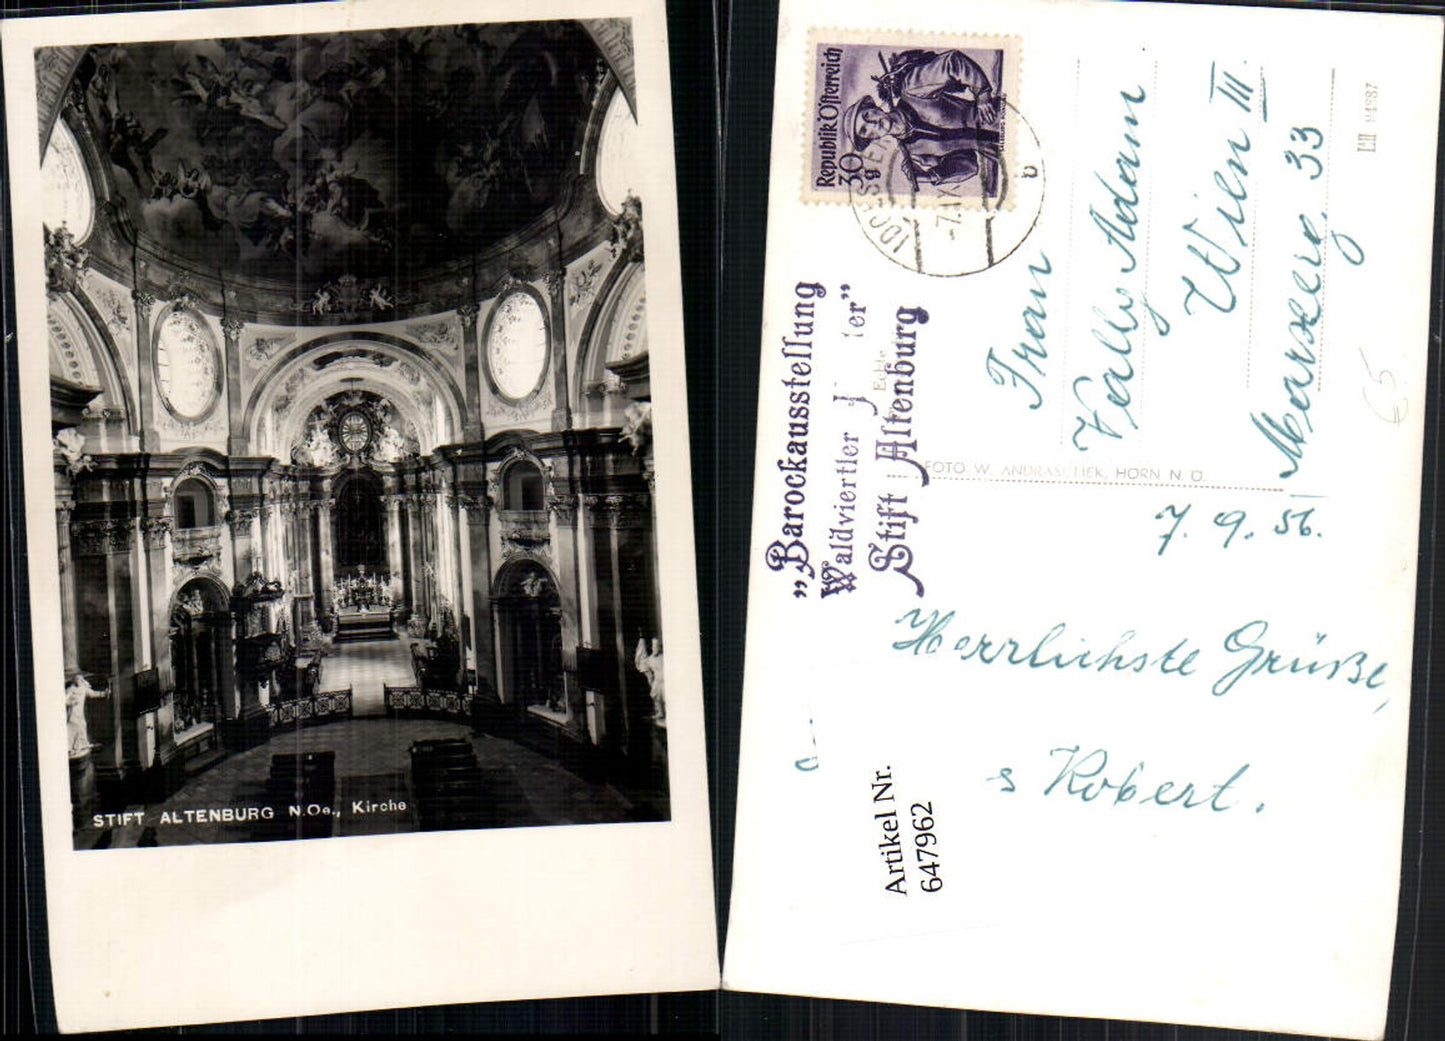 STIFT ALTENBURG N.Oe., Kirche
Republik Österreich
30
g
7.IX
„Barockausstellung
Waldviertler J ler”
Stift Altenburg
Frau
Vally Adam
Wien III.
Marxerg. 33
FOTO W. ANDRASCHEK, HORN N. Ö.
7. 9. 56.
Herrlichste Grüße,
s Robert.
Artikel Nr.
647962